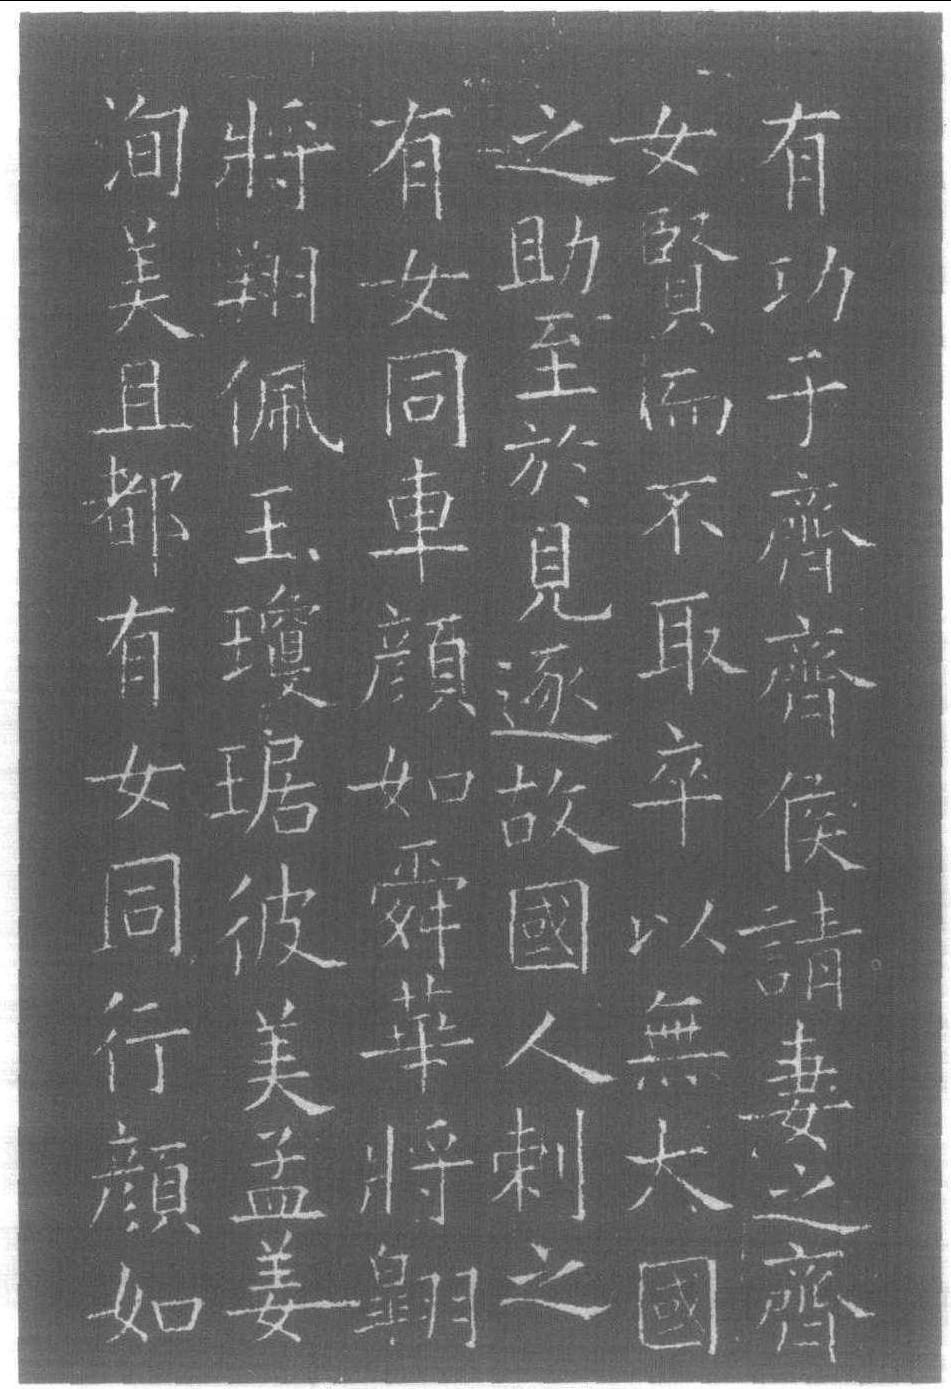 有功于齊齊侯請妻之齊
女賢而不取卒以無太國
之助至於見逐故國人刺之
有女同車顔如舜華將翺
將翔佩玉瓊琚彼美孟姜
洵美且都有女同行顔如